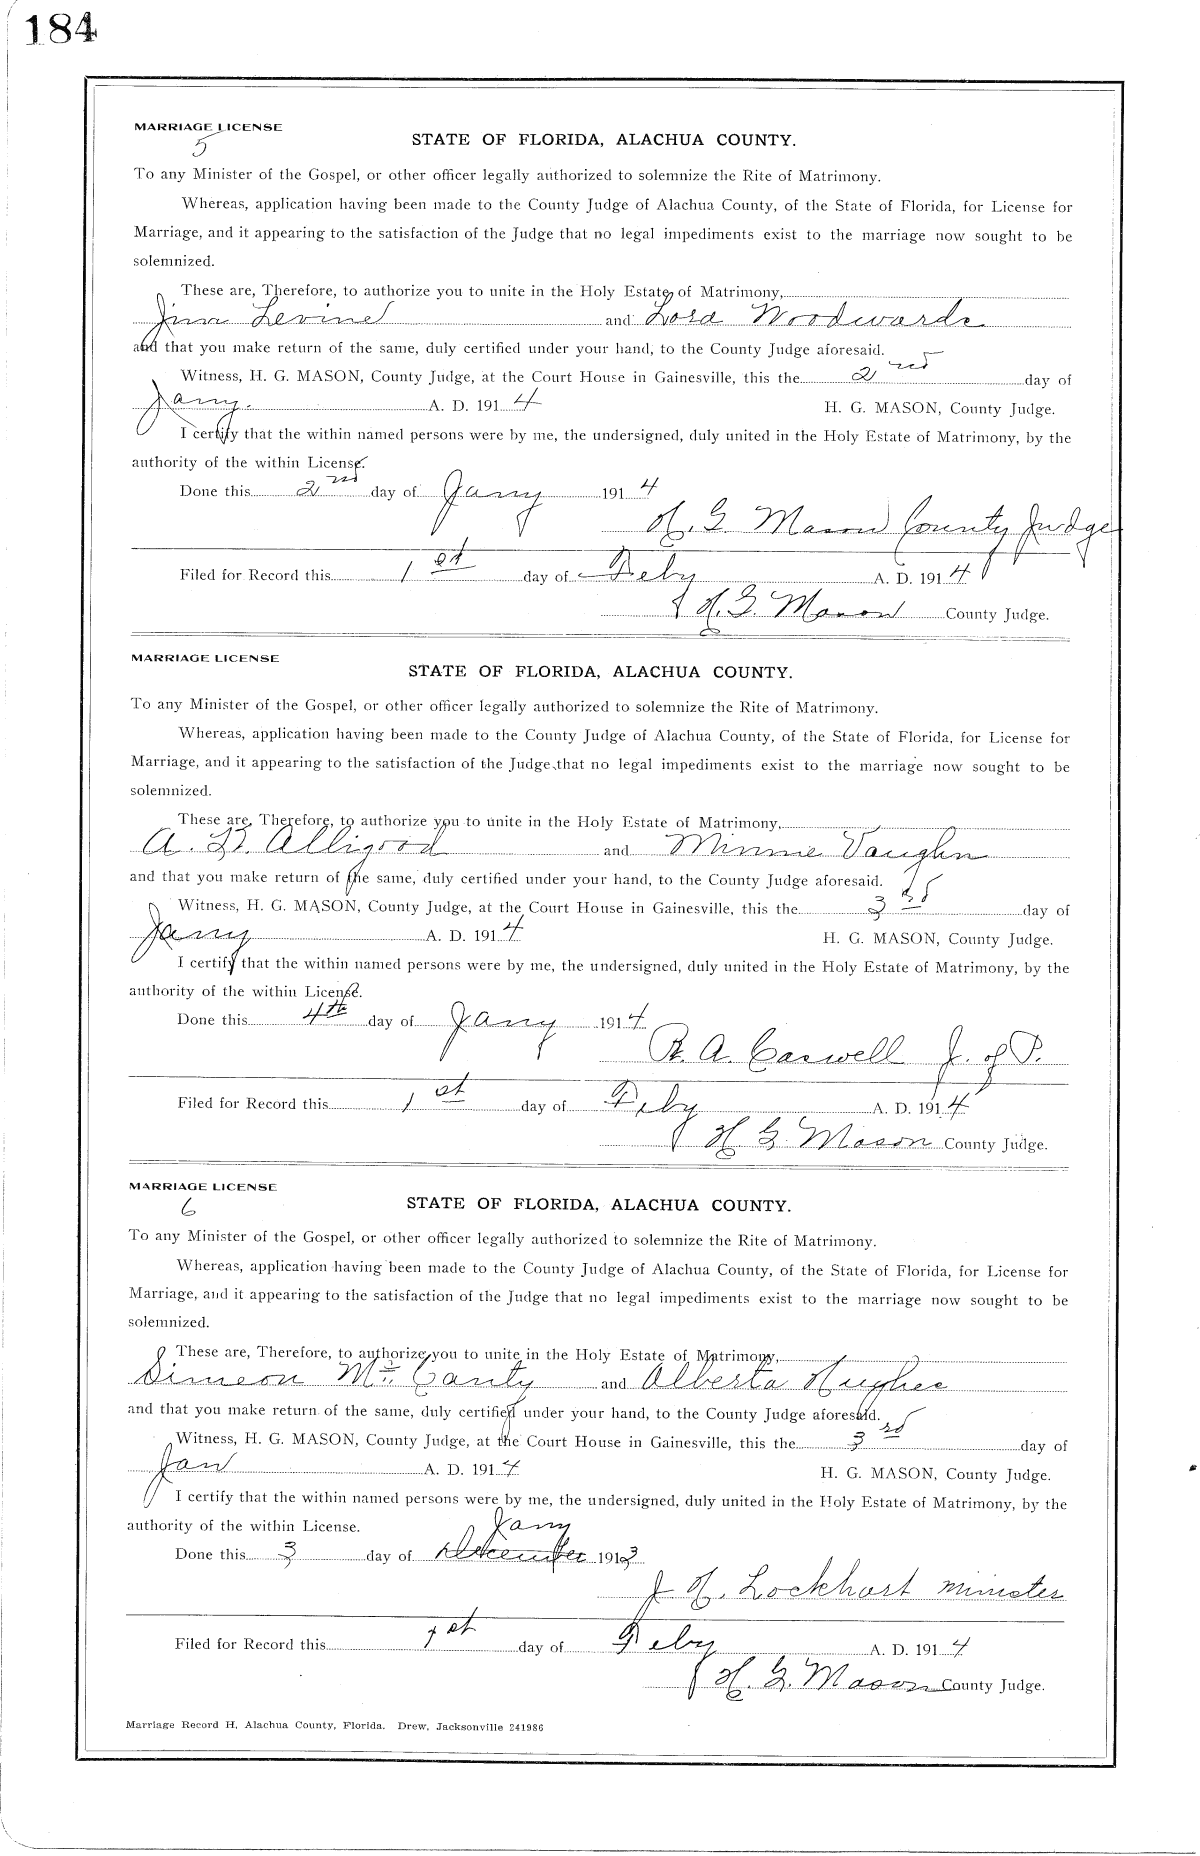 184
MARRIAGE LICENSE
5
STATE OF FLORIDA, ALACHUA COUNTY.
To any Minister of the Gospel, or other officer legally authorized to solemnize the Rite of Matrimony.
Whereas, application having been made to the County Judge of Alachua County, of the State of Florida, for License for
Marriage, and it appearing to the satisfaction of the Judge that no legal impediments exist to the marriage now sought to be
solemnized.
These are, Therefore, to authorize you to unite in the Holy Estate of Matrimony,
Jim Levine and Lora Woodwards
and that you make return of the same, duly certified under your hand, to the County Judge aforesaid.
Witness, H. G. MASON, County Judge, at the Court House in Gainesville, this the 2nd day of
Jany. A. D. 1914 H. G. MASON, County Judge.
I certify that the within named persons were by me, the undersigned, duly united in the Holy Estate of Matrimony, by the
authority of the within License.
Done this 2nd day of Jany 1914
H. G Mason County Judge
Filed for Record this 1st day of Feby A. D. 1914
H. G. Mason County Judge.
MARRIAGE LICENSE
STATE OF FLORIDA, ALACHUA COUNTY.
To any Minister of the Gospel, or other officer legally authorized to solemnize the Rite of Matrimony.
Whereas, application having been made to the County Judge of Alachua County, of the State of Florida, for License for
Marriage, and it appearing to the satisfaction of the Judge that no legal impediments exist to the marriage now sought to be
solemnized.
These are, Therefore, to authorize you to unite in the Holy Estate of Matrimony,
A. Alligood and Minnie Vaughn
and that you make return of the same, duly certified under your hand, to the County Judge aforesaid.
Witness, H. G. MASON, County Judge, at the Court House in Gainesville, this the 3rd day of
Jany A. D. 1914 H. G. MASON, County Judge.
I certify that the within named persons were by me, the undersigned, duly united in the Holy Estate of Matrimony, by the
authority of the within License.
Done this 4th day of Jany 1914
R. A. Caswell J. of P.
Filed for Record this 1st day of Feby A. D. 1914
H. G. Mason County Judge.
MARRIAGE LICENSE
6
STATE OF FLORIDA, ALACHUA COUNTY.
To any Minister of the Gospel, or other officer legally authorized to solemnize the Rite of Matrimony.
Whereas, application having been made to the County Judge of Alachua County, of the State of Florida, for License for
Marriage, and it appearing to the satisfaction of the Judge that no legal impediments exist to the marriage now sought to be
solemnized.
These are, Therefore, to authorize you to unite in the Holy Estate of Matrimony,
Simeon Mc Canty and Alberta Hughes
and that you make return of the same, duly certified under your hand, to the County Judge aforesaid.
Witness, H. G. MASON, County Judge, at the Court House in Gainesville, this the 3rd day of
Jan A. D. 1914 H. G. MASON, County Judge.
I certify that the within named persons were by me, the undersigned, duly united in the Holy Estate of Matrimony, by the
authority of the within License.
Jany
Done this 3 day of December 1913
J H. Lockhart minister
Filed for Record this 1st day of Feby A. D. 1914
H. G. Mason County Judge.
Marriage Record H, Alachua County, Florida. Drew, Jacksonville 241986